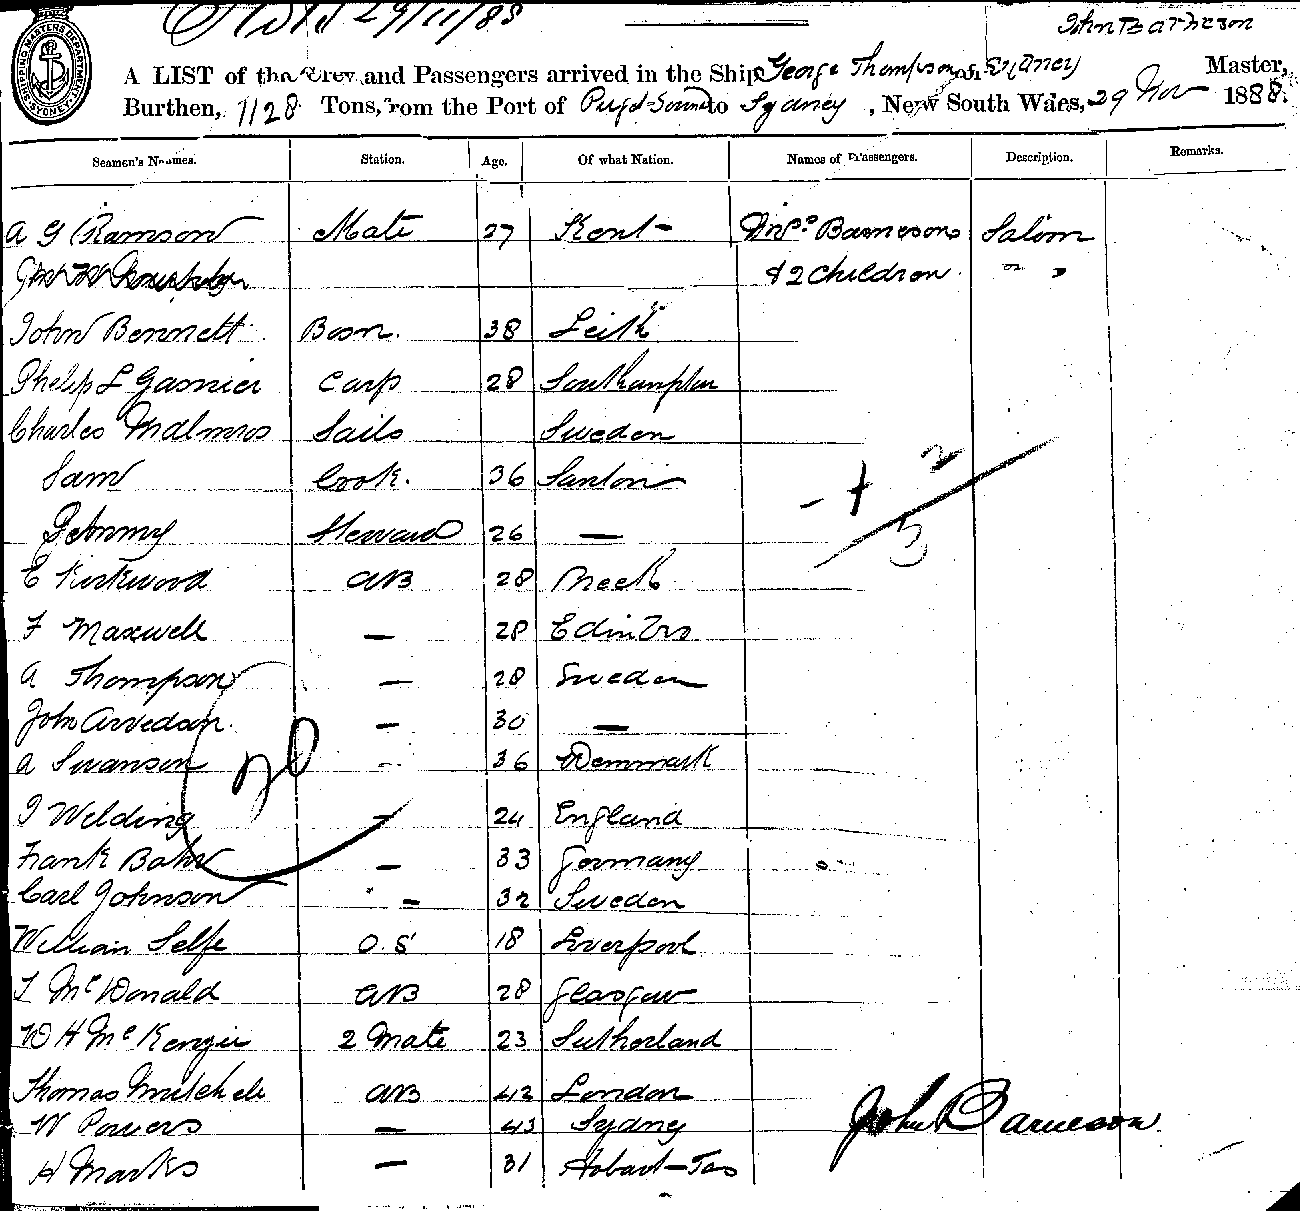 29/11/88
John Barneson
A LIST of the Crew and Passengers arrived in the Ship George Thompson of Sydney Master,
Burthen, 1128 Tons, from the Port of Puget Sound to Sydney, New South Wales, 29 Nov 1888.
Seamen's Names. Station. Age. Of what Nation. Names of Passengers. Description. Remarks.
A G Ramson Mate 27 Kent Mrs Barneson Saloon
& 2 Children " "
John Bennett Bosn. 38 Leith
Philip L Gasnier Carp 28 Southampton
Charles Malmros Sails Sweden
Sam Cook. 36 Canton
Steward 26 —
E Kirkwood AB 28
F Maxwell — 28 Edinbro
A Thompson — 28 Sweden
John Arvedson — 30 —
A Swanson - 36 Denmark
20
J Welding — 24 England
Frank Bahr — 33 Germany
Carl Johnson — 32 Sweden
William Selfe O.S 18 Liverpool
McDonald AB 28 Glasgow
W H McKenzie 2 Mate 23 Sutherland
Thomas Mitchell AB 42 London
W Powers — 43 Sydney
H Marks — 31 Hobart-Tas
John Barneson